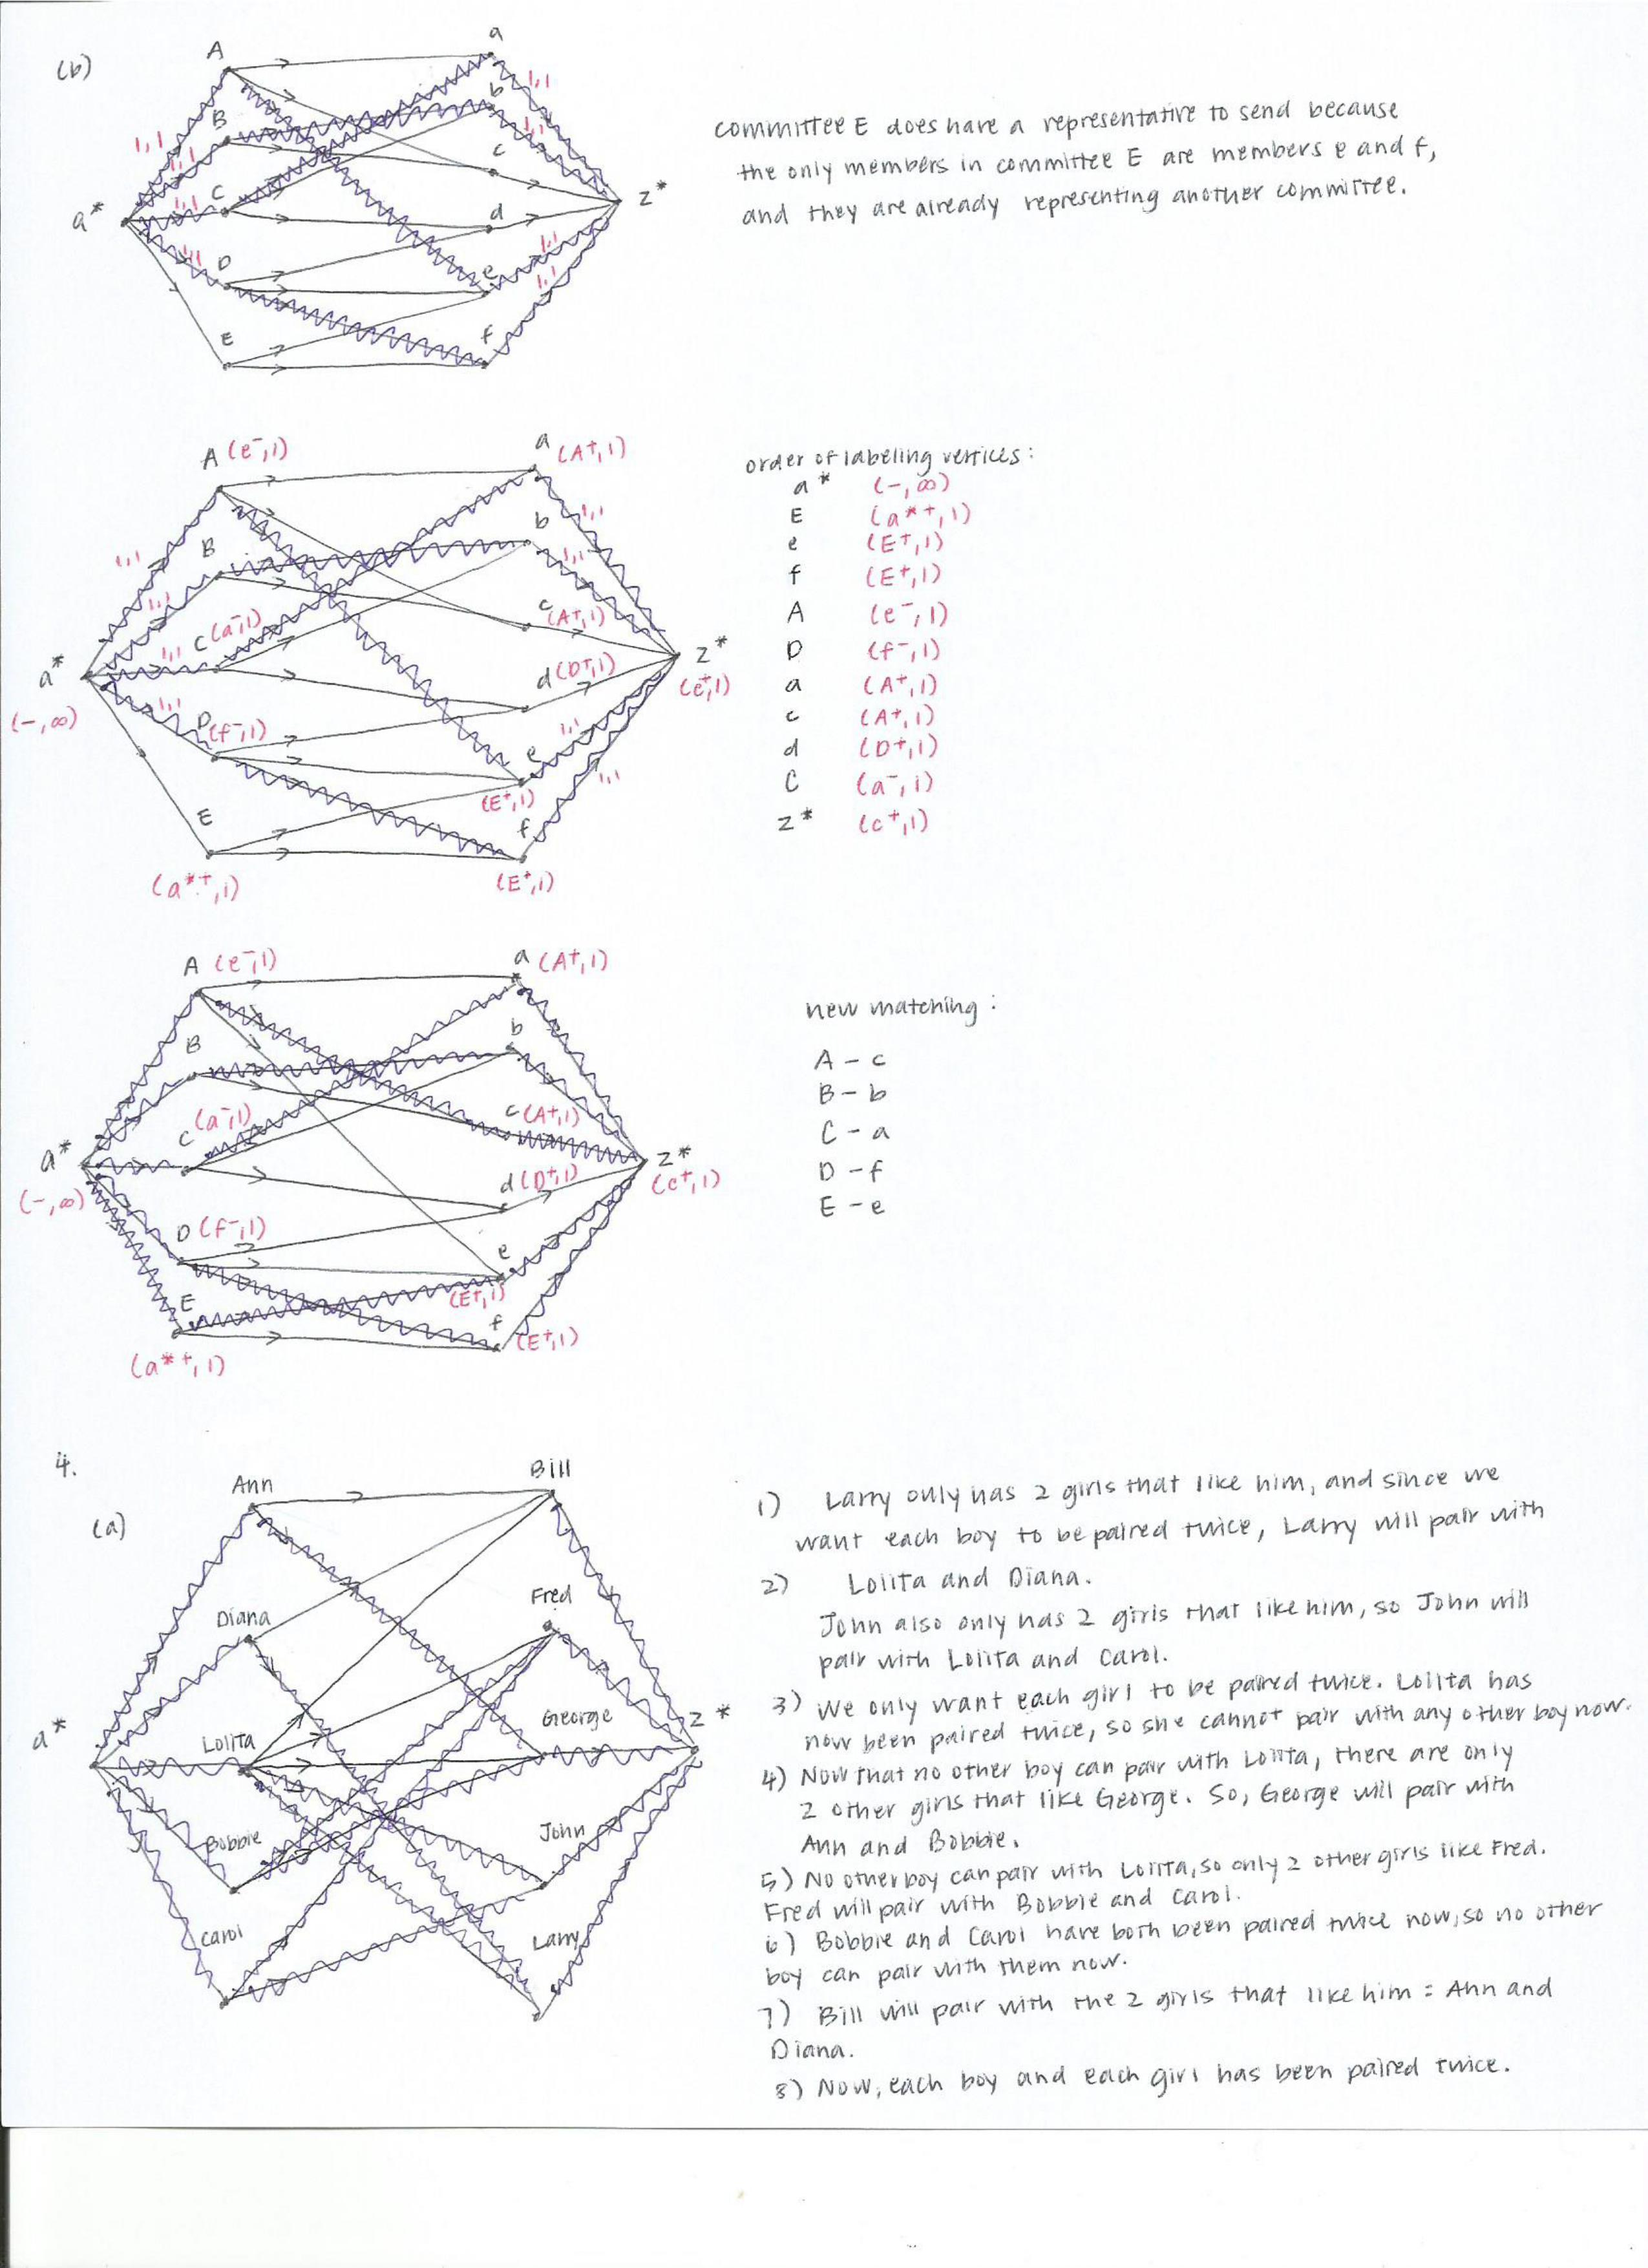 (b)
A
a
B
b
C
c
D
d
E
e
f
a*
z*
1,1
1,1
1,1
1,1
1,1
1,1
1,1
1,1
committee E does have a representative to send because
the only members in committee E are members e and f,
and they are already representing another committee.
A (e⁻,1)
a (A⁺,1)
B
b
C (a⁻,1)
c (A⁺,1)
D (f⁻,1)
d (D⁺,1)
E
(a*⁺,1)
e
(E⁺,1)
f
(E⁺,1)
a*
(-,∞)
z*
(c⁺,1)
1,1
1,1
1,1
1,1
1,1
1,1
1,1
1,1
order of labeling vertices:
a* (-,∞)
E (a*⁺,1)
e (E⁺,1)
f (E⁺,1)
A (e⁻,1)
D (f⁻,1)
a (A⁺,1)
c (A⁺,1)
d (D⁺,1)
C (a⁻,1)
z* (c⁺,1)
A (e⁻,1)
a (A⁺,1)
B
b
C (a⁻,1)
c (A⁺,1)
d (D⁺,1)
D (f⁻,1)
e
(E⁺,1)
E
(a*⁺,1)
f
(E⁺,1)
a*
(-,∞)
z*
(c⁺,1)
new matching:
A - c
B - b
C - a
D - f
E - e
4.
(a)
Ann
Bill
Diana
Fred
Lolita
George
Bobbie
John
Carol
Larry
a*
z*
1) Larry only has 2 girls that like him, and since we
want each boy to be paired twice, Larry will pair with
2) Lolita and Diana.
John also only has 2 girls that like him, so John will
pair with Lolita and Carol.
3) We only want each girl to be paired twice. Lolita has
now been paired twice, so she cannot pair with any other boy now.
4) Now that no other boy can pair with Lolita, there are only
2 other girls that like George. So, George will pair with
Ann and Bobbie.
5) No other boy can pair with Lolita, so only 2 other girls like Fred.
Fred will pair with Bobbie and Carol.
6) Bobbie and Carol have both been paired twice now, so no other
boy can pair with them now.
7) Bill will pair with the 2 girls that like him: Ann and
Diana.
8) Now, each boy and each girl has been paired twice.